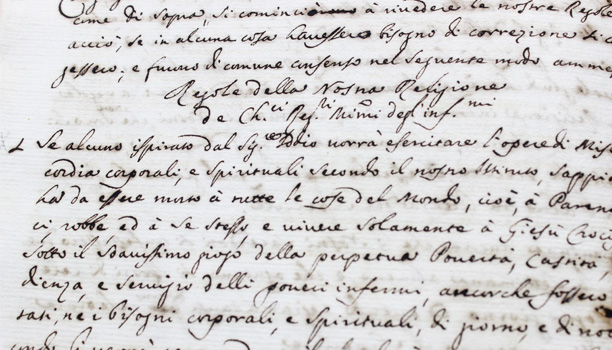 come di sopra, si cominciò à rivedere le nostre Regole
acciò, se in alcuna cosa havessero bisogno di correzione si
gessero, e furono di comune consenso nel seguente modo amme
Regole della Nostra Religione
de Ch.ci Reg.ri Min.i degl'Inf.mi
Se alcuno ispirato dal Sig.re Iddio vorrà esercitare l'opere di Mise
cordia corporali, e Spirituali secondo il nostro Istituto, sappia
ha da essere morto à tutte le cose del Mondo, cioè, à Paren
ci robbe, ed à se stesso, e vivere solamente à Giesù Croci
sotto il Soavissimo giogo della perpetua Povertà, Castità
dienza, e servizio delli poveri infermi, ancorche fossero
tati, ne i bisogni corporali, e Spirituali, di giorno, e di not